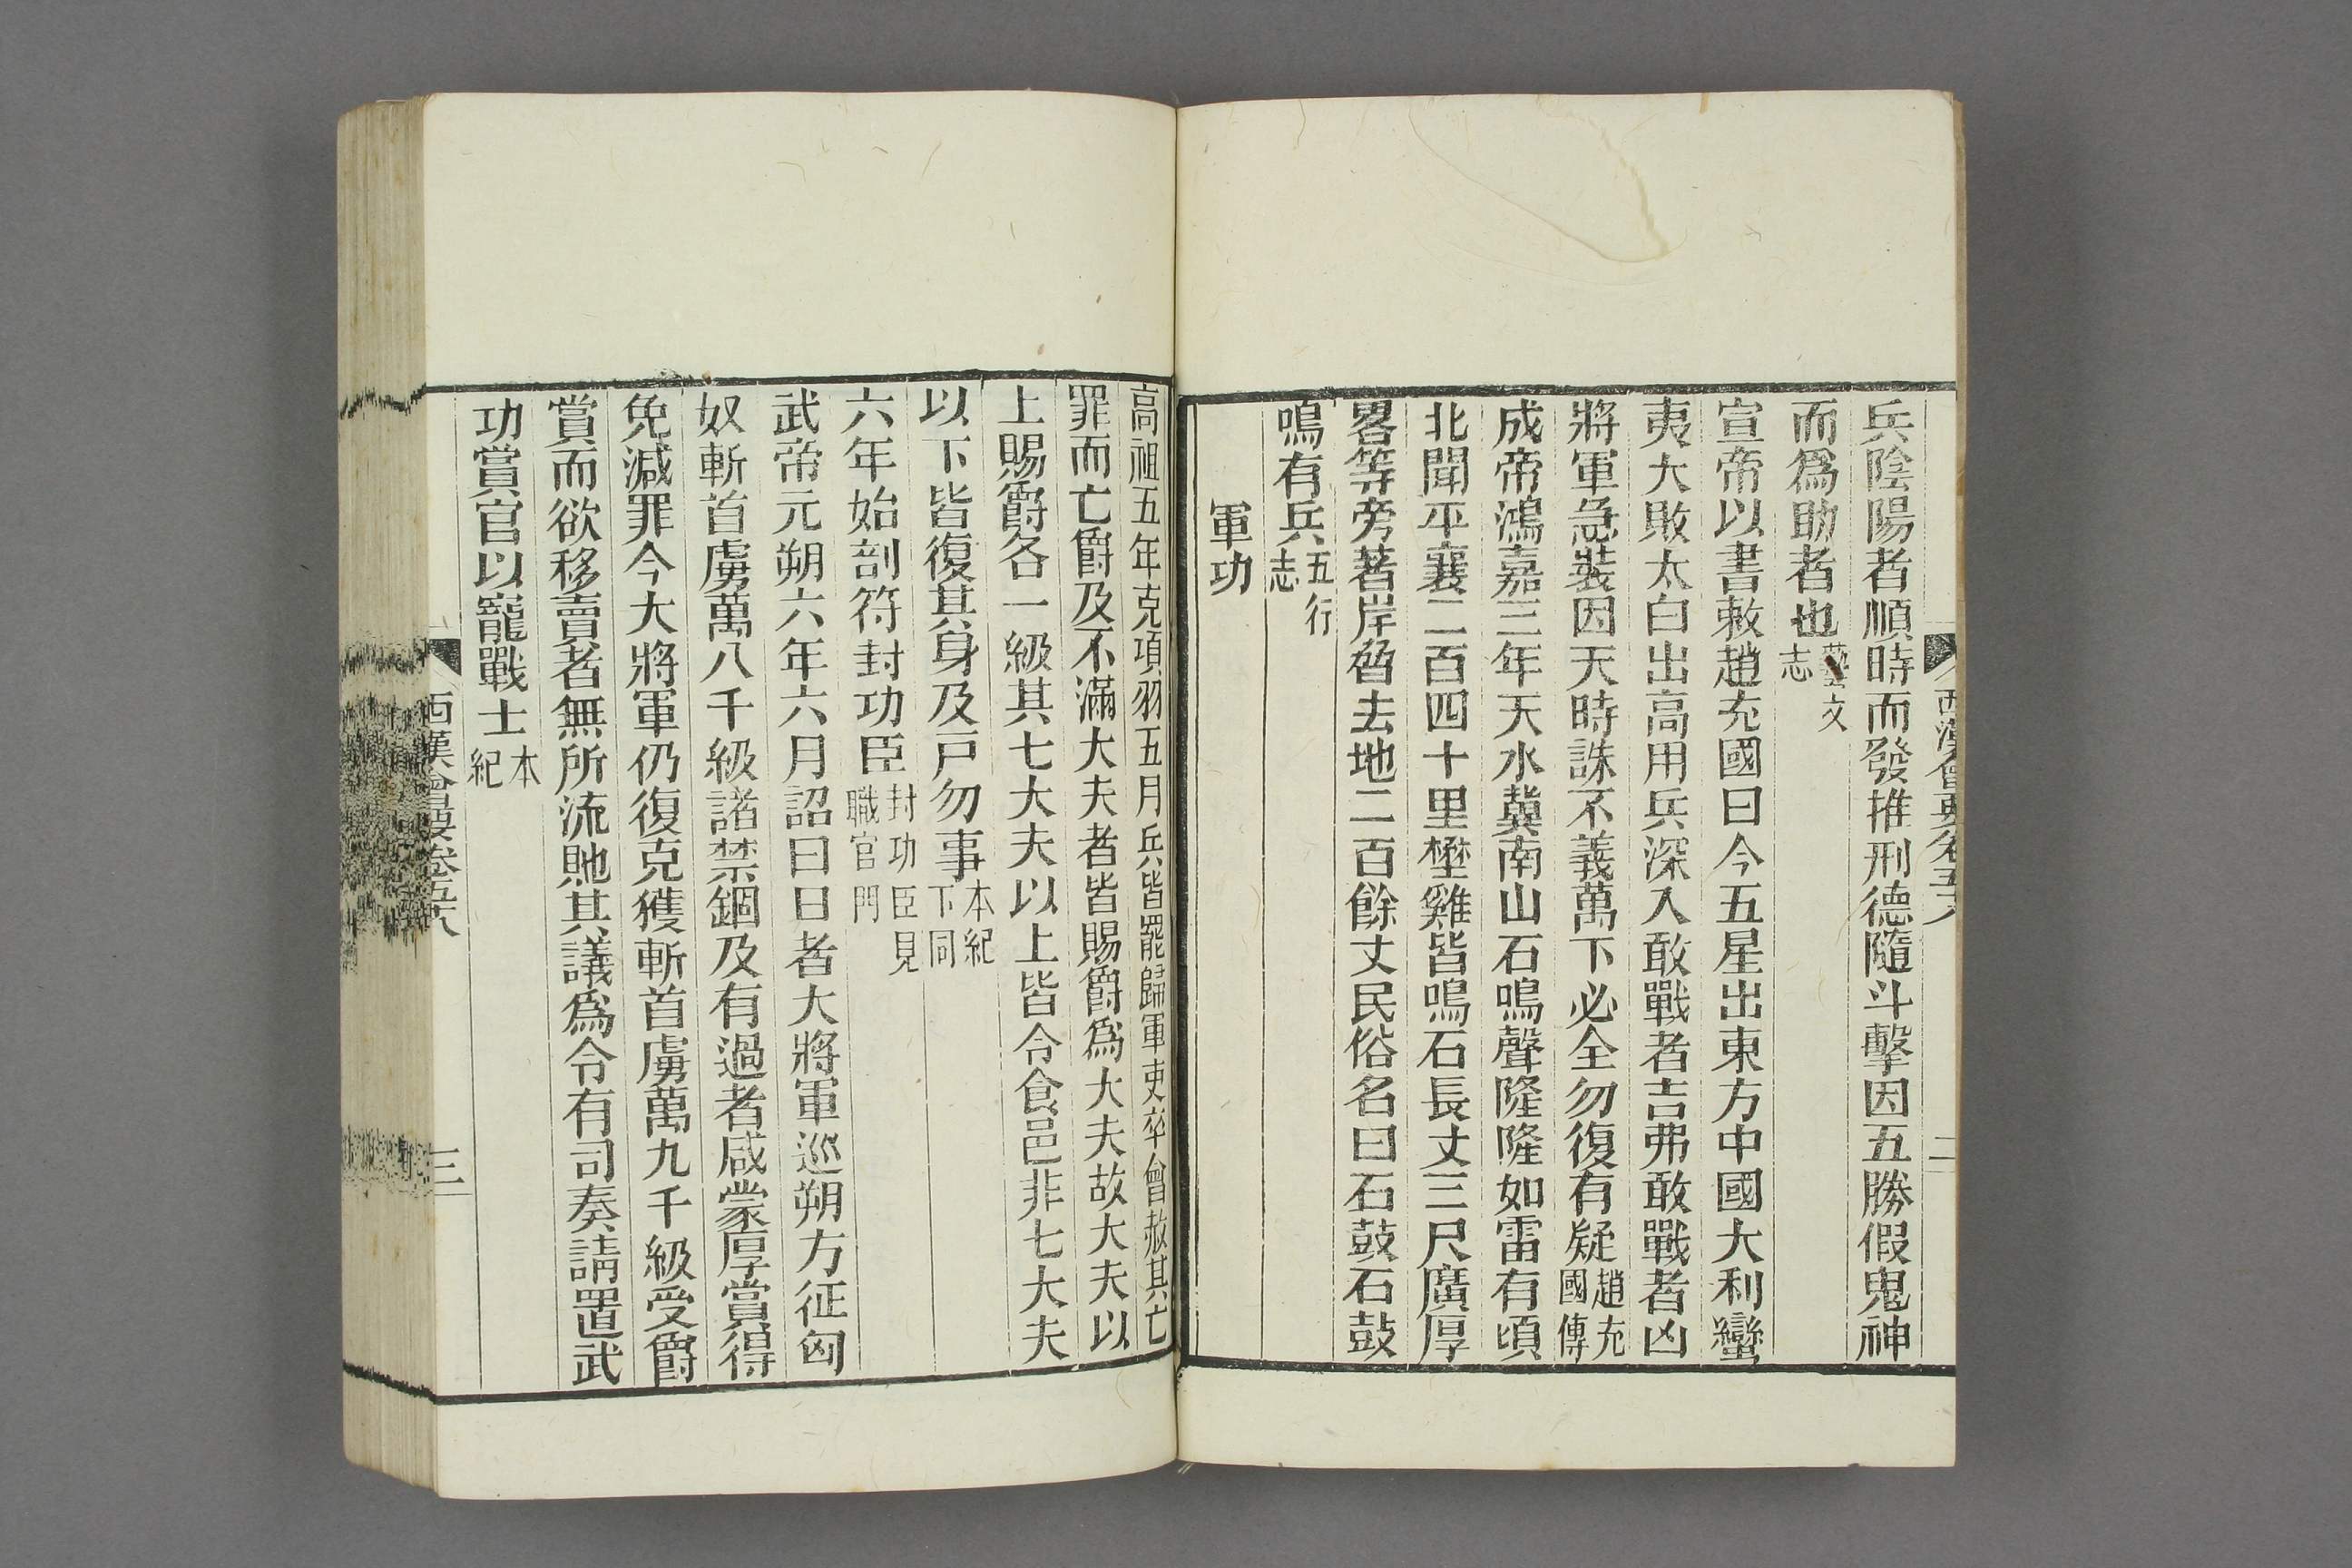 西漢會要卷五六
二
兵陰陽者順時而發推刑德隨斗擊因五勝假鬼神
而爲助者也藝文志
宣帝以書敕趙充國曰今五星出東方中國大利蠻
夷大敗太白出高用兵深入敢戰者吉弗敢戰者凶
將軍急裝因天時誅不義萬下必全勿復有疑趙充國傳
成帝鴻嘉三年天水冀南山石鳴聲隆隆如雷有頃
北聞平襄二百四十里壄雞皆鳴石長丈三尺廣厚
畧等旁著岸脅去地二百餘丈民俗名曰石鼓石鼓
鳴有兵五行志
軍功
高祖五年克項羽五月兵皆罷歸軍吏卒會赦其亡
罪而亡爵及不滿大夫者皆賜爵爲大夫故大夫以
上賜爵各一級其七大夫以上皆令食邑非七大夫
以下皆復其身及戸勿事本紀下同
六年始剖符封功臣封功臣見職官門
武帝元朔六年六月詔曰日者大將軍巡朔方征匈
奴斬首虜萬八千級諸禁錮及有過者咸蒙厚賞得
免減罪今大將軍仍復克獲斬首虜萬九千級受爵
賞而欲移賣者無所流貤其議爲令有司奏請置武
功賞官以寵戰士本紀
西漢會要卷五六
三